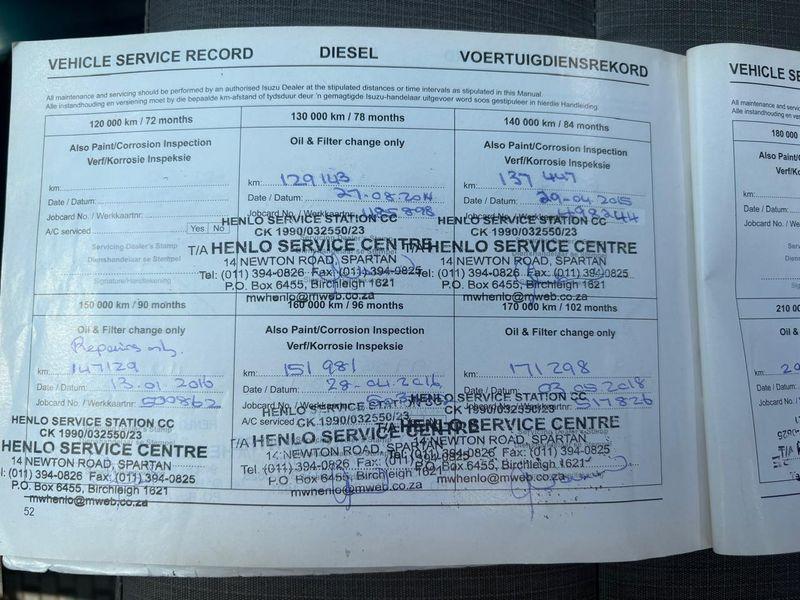 VEHICLE SERVICE RECORD DIESEL VOERTUIGDIENSREKORD
All maintenance and servicing should be performed by an authorised Isuzu Dealer at the stipulated distances or time intervals as stipulated in this Manual.
Alle instandhouding en versiening moet by die bepaalde km-afstand of tydsduur deur 'n gemagtigde Isuzu-handelaar uitgevoer word soos gestipuleer in hierdie Handleiding.
120 000 km / 72 months
Also Paint/Corrosion Inspection
Verf/Korrosie Inspeksie
km:
Date / Datum:
Jobcard No. / Werkkaartnr:
A/C serviced Yes No
Servicing Dealer's Stamp
Dienshandelaar se Stempel
Signature/Handtekening
130 000 km / 78 months
Oil & Filter change only
km: 129143
Date / Datum: 27-08-2014
Jobcard No. / Werkkaartnr:
HENLO SERVICE STATION CC
CK 1990/032550/23
T/A HENLO SERVICE CENTRE
14 NEWTON ROAD, SPARTAN
Tel: (011) 394-0826 Fax: (011) 394-0825
P.O. Box 6455, Birchleigh 1621
mwhenlo@mweb.co.za
140 000 km / 84 months
Also Paint/Corrosion Inspection
Verf/Korrosie Inspeksie
km: 137 447
Date / Datum: 29-04-2015
HENLO SERVICE STATION CC
CK 1990/032550/23
HENLO SERVICE CENTRE
14 NEWTON ROAD, SPARTAN
Tel: (011) 394-0826 Fax: (011) 394-0825
P.O. Box 6455, Birchleigh 1621
mwhenlo@mweb.co.za
150 000 km / 90 months
Oil & Filter change only
Repairs only.
km: 147129
Date / Datum: 13.01.2016
Jobcard No. / Werkkaartnr: 500862
HENLO SERVICE STATION CC
CK 1990/032550/23
HENLO SERVICE CENTRE
14 NEWTON ROAD, SPARTAN
(011) 394-0826 Fax: (011) 394-0825
P.O. Box 6455, Birchleigh 1621
mwhenlo@mweb.co.za
160 000 km / 96 months
Also Paint/Corrosion Inspection
Verf/Korrosie Inspeksie
km: 151 981
Date / Datum: 28-04-2016
Jobcard No. / Werkkaartnr:
A/C serviced
HENLO SERVICE STATION CC
CK 1990/032550/23
T/A HENLO SERVICE CENTRE
14 NEWTON ROAD, SPARTAN
Tel: (011) 394-0826 Fax: (011) 394-0825
P.O. Box 6455, Birchleigh 1621
mwhenlo@mweb.co.za
170 000 km / 102 months
Oil & Filter change only
km: 171298
Date / Datum: 03.05.2018
517826
HENLO SERVICE STATION CC
CK 1990/032550/23
T/A HENLO SERVICE CENTRE
14 NEWTON ROAD, SPARTAN
Tel: (011) 394-0826 Fax: (011) 394-0825
P.O. Box 6455, Birchleigh 1621
mwhenlo@mweb.co.za
52
VEHICLE SE
All maintenance and
Alle instandhouding en
180 000
Also Pai
km:
Date / Datum:
Jobcard No.
A/C serviced
210 00
Oil &
km: 20
Date / Datum:
Jobcard No.